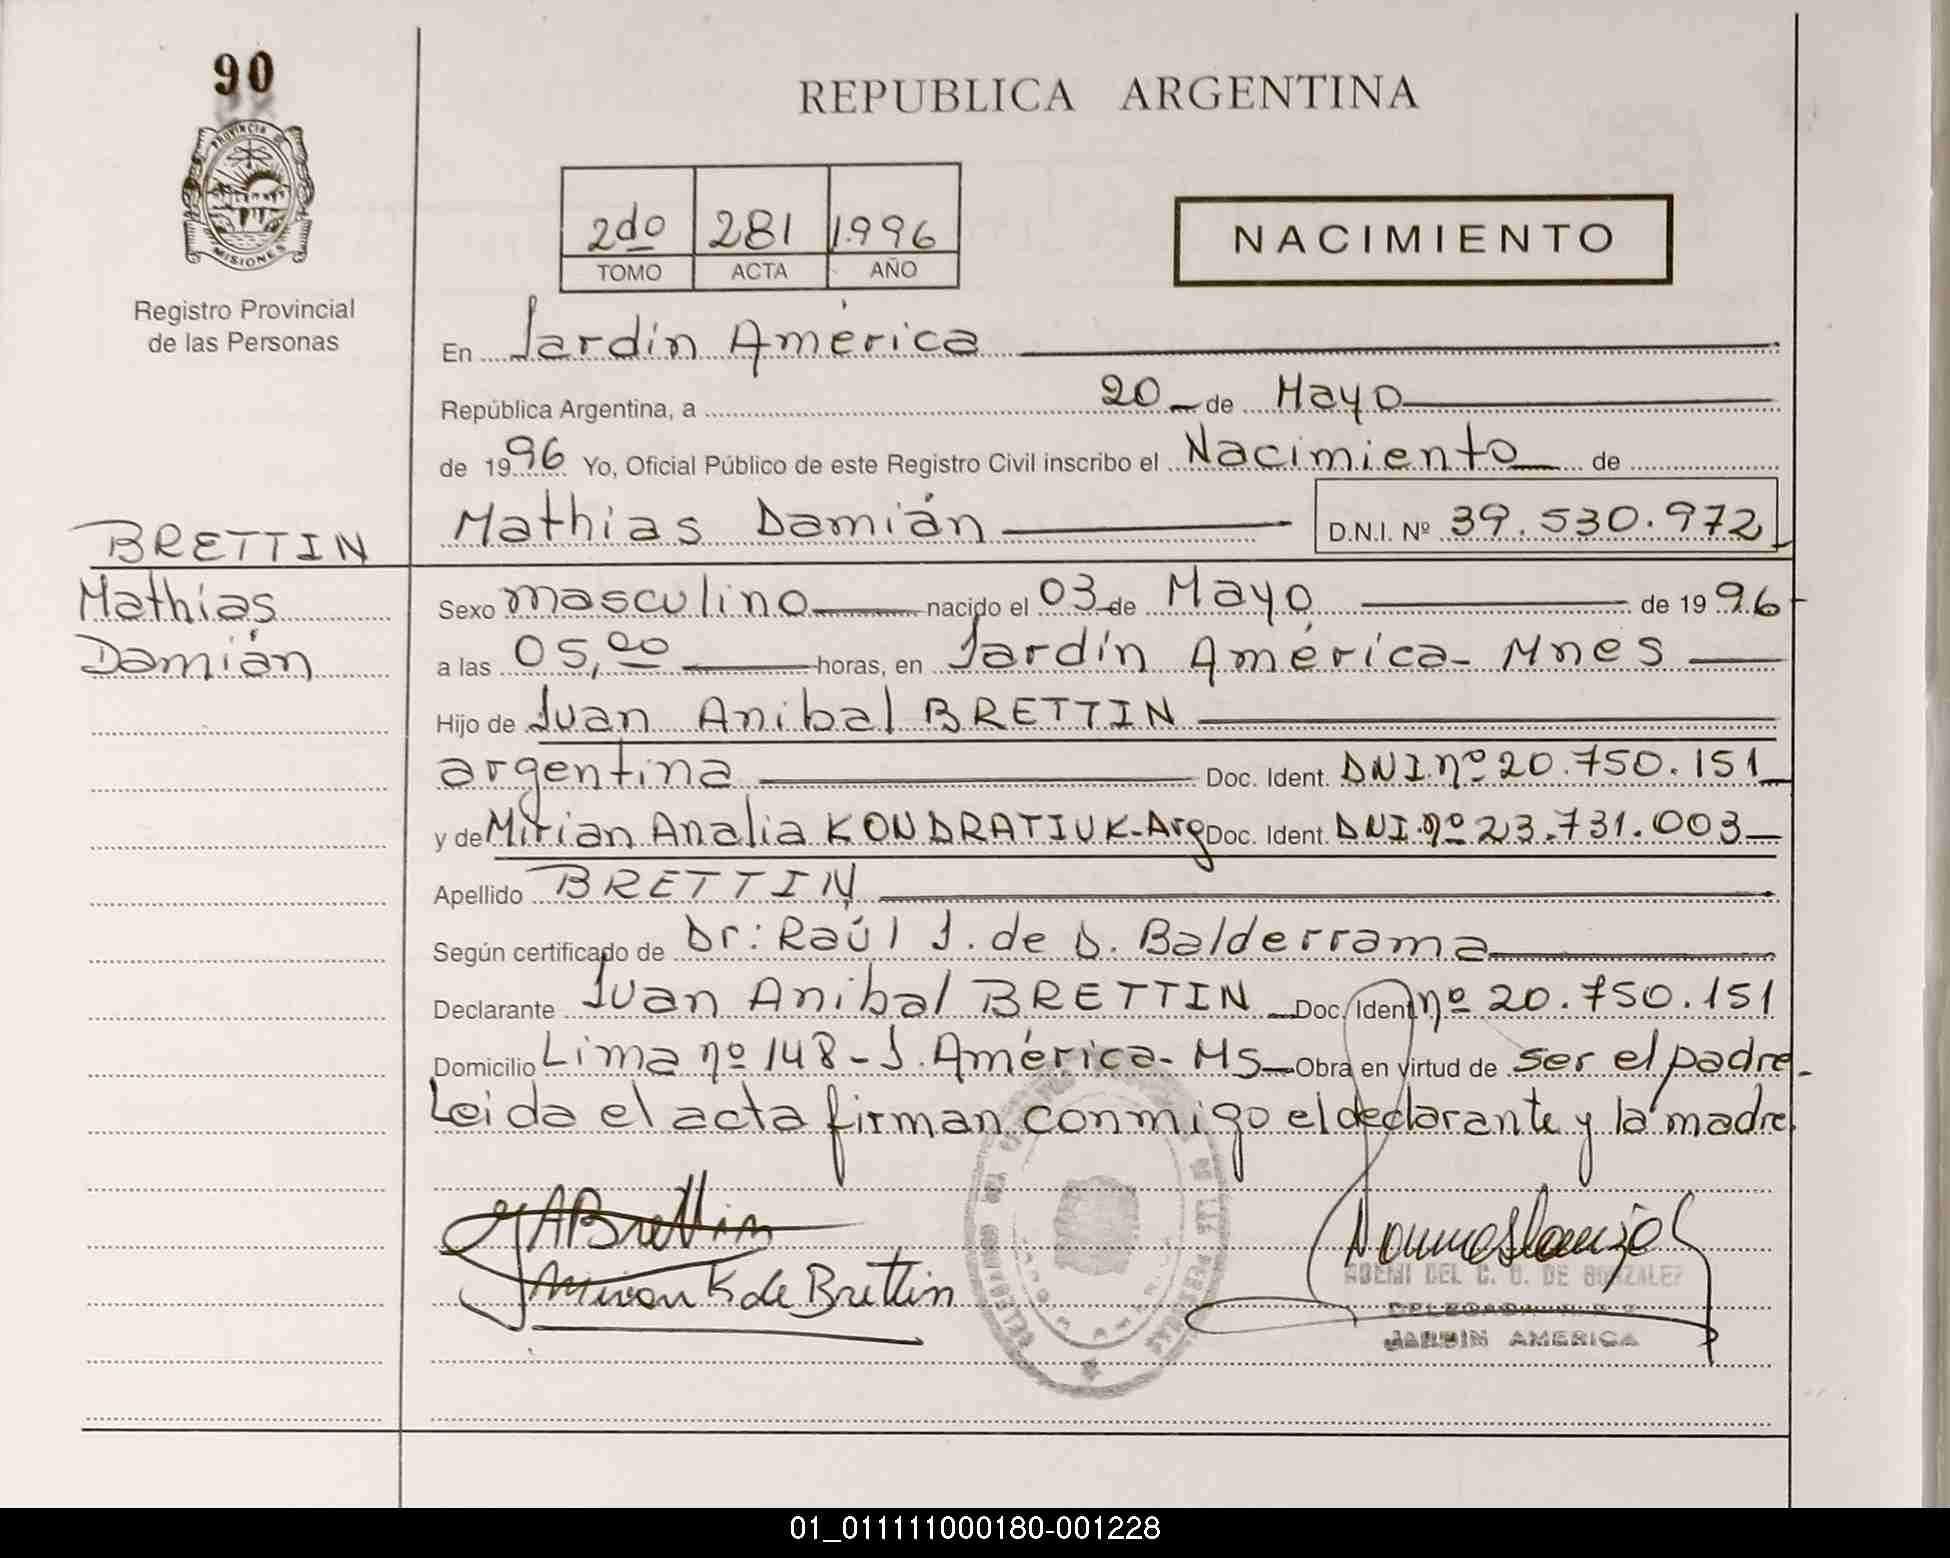 90
REPUBLICA ARGENTINA
PROVINCIA DE
MISIONES
Registro Provincial
de las Personas
2do 281 1.996
TOMO ACTA AÑO
NACIMIENTO
En Jardín América
República Argentina, a 20 de Mayo
de 1996 Yo, Oficial Público de este Registro Civil inscribo el Nacimiento de
Mathias Damián D.N.I. Nº 39.530.972
BRETTIN
Mathías
Damián
Sexo masculino nacido el 03 de Mayo de 1996
a las 05,00 horas, en Jardín América - Mnes
Hijo de Juan Anibal BRETTIN
argentina Doc. Ident. DNI. nº 20.750.151
y de Mirian Analia KONDRATIUK-Arg Doc. Ident. DNI. nº 23.731.003
Apellido BRETTIN
Según certificado de Dr: Raúl J. de D. Balderrama
Declarante Juan Anibal BRETTIN Doc. Ident nº 20.750.151
Domicilio Lima nº 148 - J. América - MS Obra en virtud de ser el padre.
Leida el acta firman conmigo el declarante y la madre.
JABrettin
Mirian K de Brettin
NOEMI DEL C. D. DE GONZALEZ
DELEGADA
JARDIN AMERICA
01_011111000180-001228